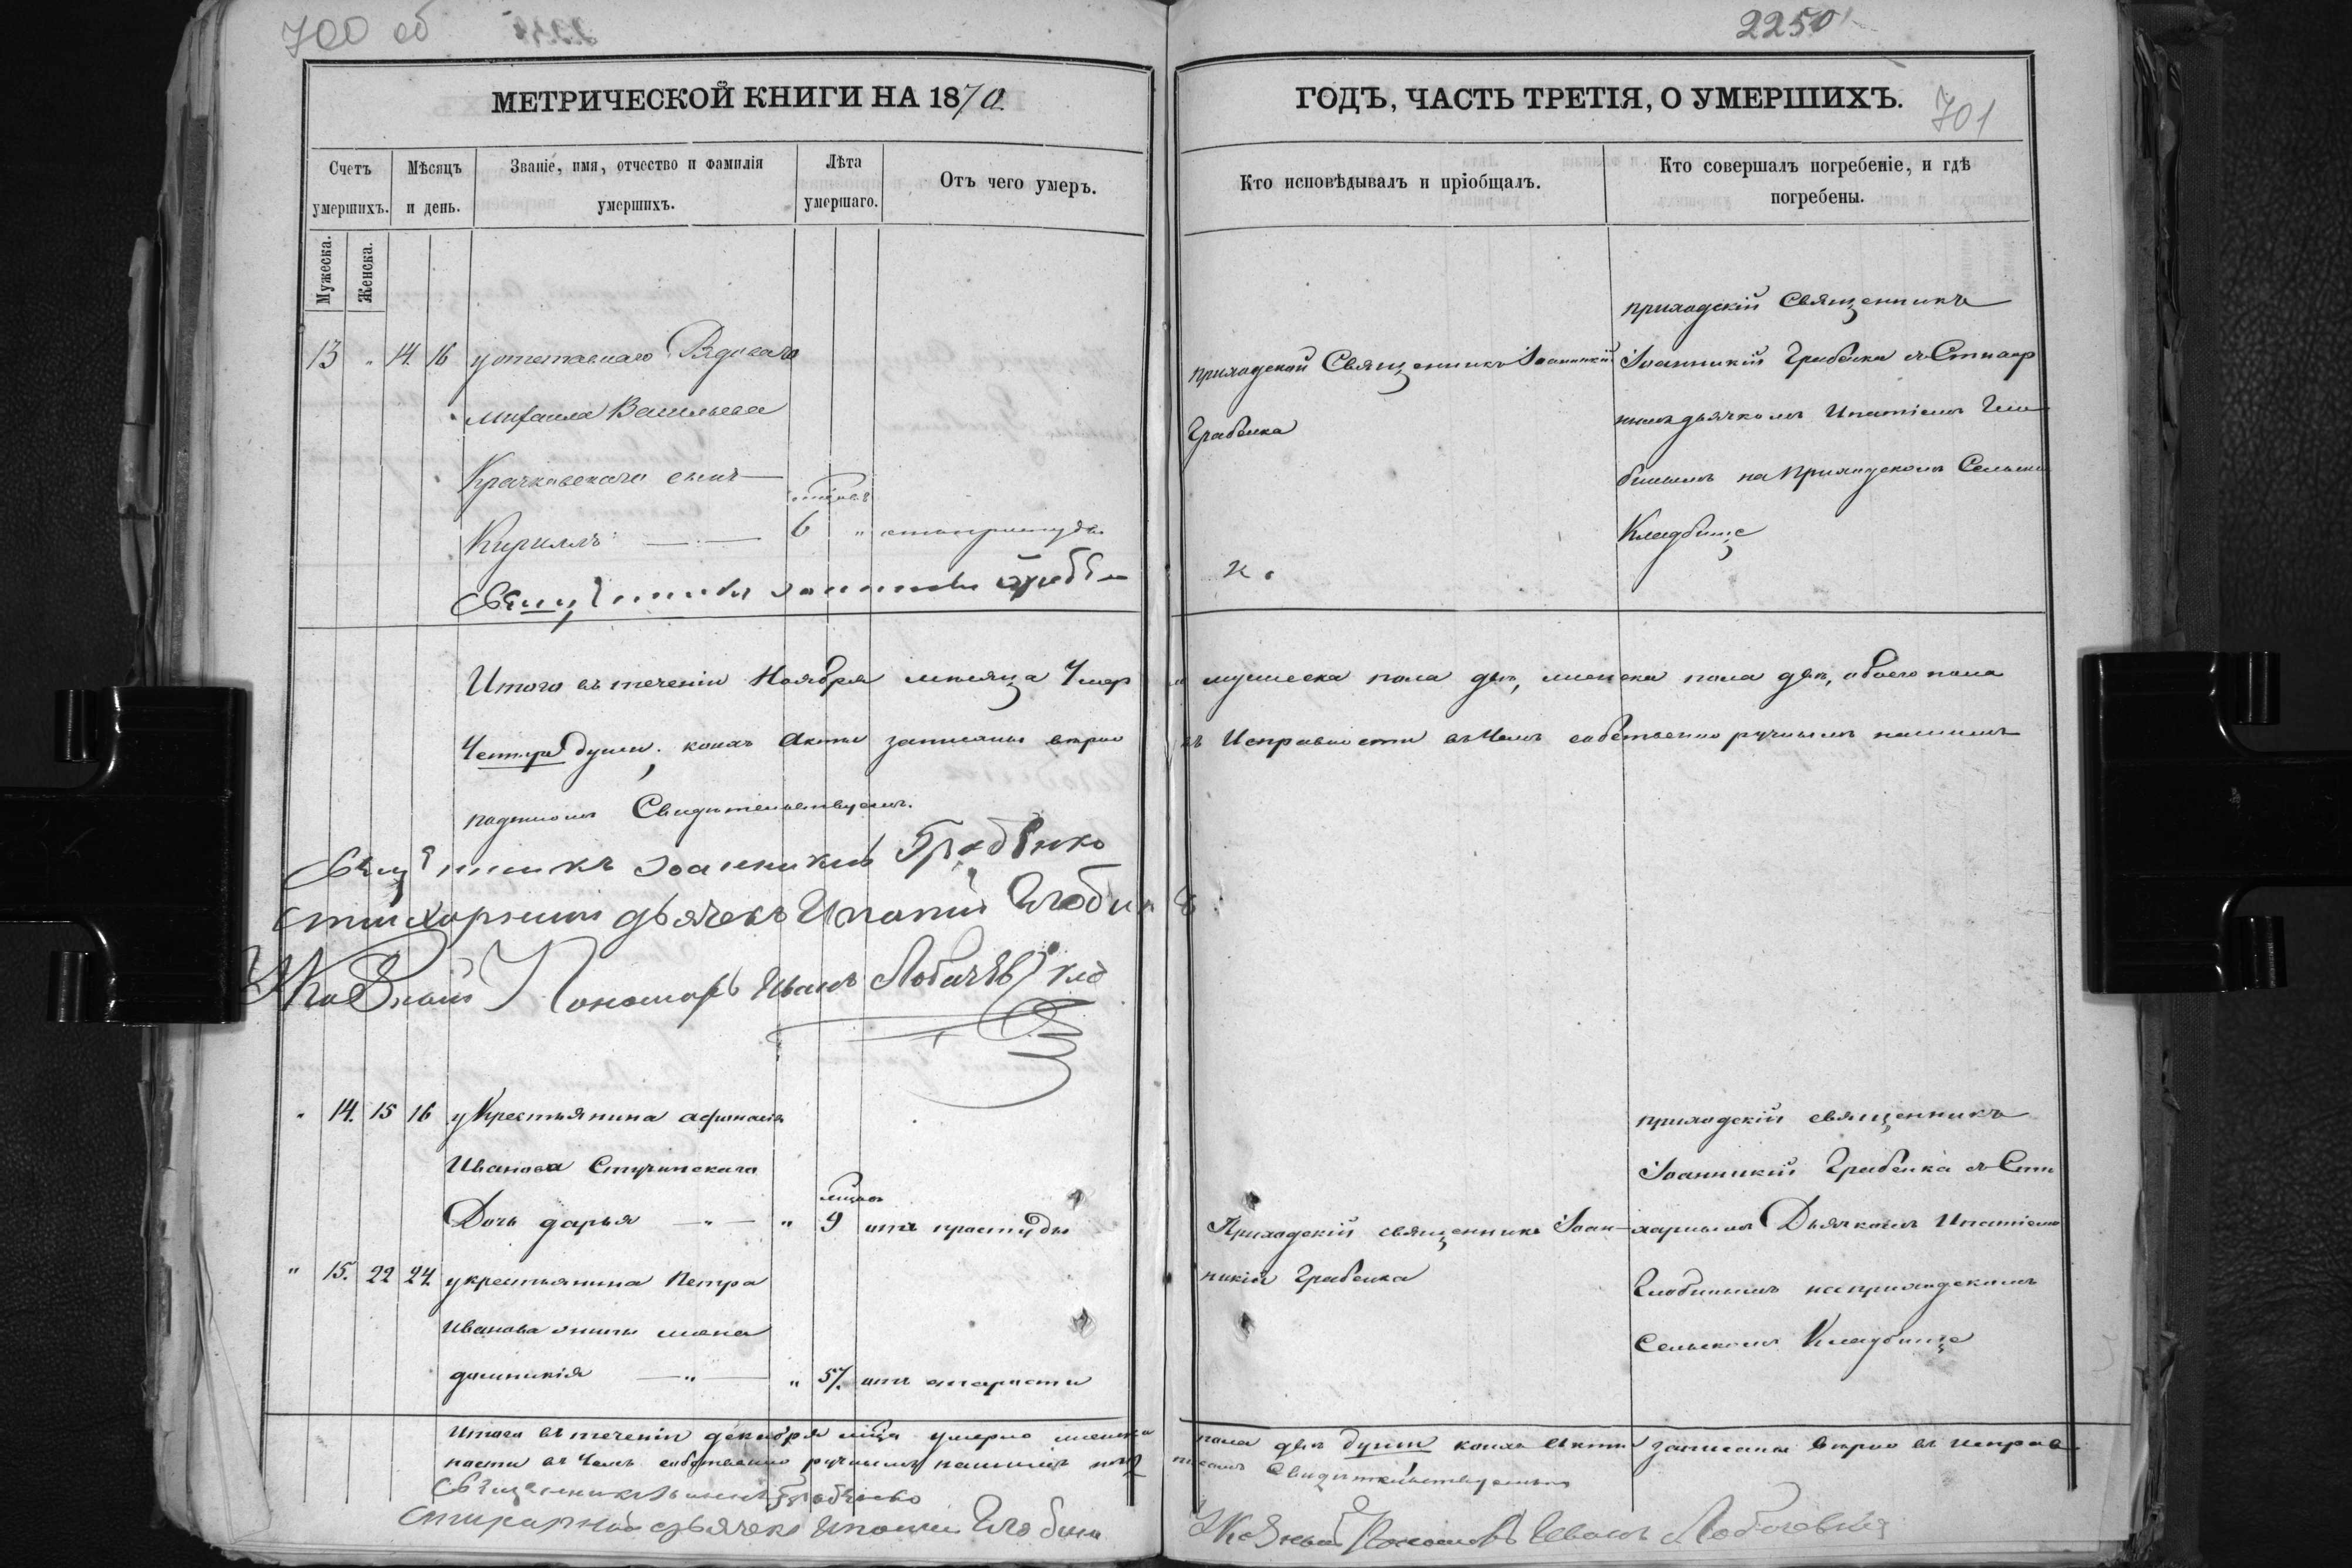 700 об
2250
МЕТРИЧЕСКОЙ КНИГИ НА 1870.
ГОДЪ, ЧАСТЬ ТРЕТІЯ, О УМЕРШИХЪ.
701
Счетъ умершихъ.
Мѣсяцъ и день.
Званіе, имя, отчество и фамилія умершихъ.
Лѣта умершаго.
Отъ чего умеръ.
Кто исповѣдывалъ и пріобщалъ.
Кто совершалъ погребеніе, и гдѣ погребены.
Мужеска.
Женска.
13 " 14. 16 у отставнаго Рядоваго
Михаила Васильева
Крачковскаго сынъ
Кириллъ 6 " отъ простуды
Приходской Священникъ Іоанникій
Грабенка
приходскій Священникъ
Іоанникій Грабенка съ Стихар
нымъ дьячкомъ Ипатіемъ Гло
бинымъ на Приходскомъ Сельском
Кладбище
Итого въ теченіи Ноября месяца Умер
ло мужеска пола две, женска пола две, обоего пола
Четыре души, коихъ Акты записаны верно
въ Исправности въ Чемъ собственно ручнымъ нашимъ
подписомъ Свидетельствуемъ.
Священникъ Іоанникій Грабенко
Стихарный дьячекъ Ипатій Глобин
Указный Пономарь Иванъ Лобачевскій
" 14. 15 16 у Крестьянина Афанасія
Иванова Стученскаго
Дочь Дарья " 9 отъ простуды
Приходскій священникъ Іоан-
никій Грабенка
приходскій священникъ
Іоанникій Грабенка съ Сти
харнымъ Дьячкомъ Ипатіемъ
Глобинымъ на приходскомъ
Сельскомъ Кладбище
" 15. 22 24 у крестьянина Петра
Иванова жена
Домникія " 57. отъ старости
Итого въ теченіи декабря м-ца умерло женска
пола две души коихъ Акты записаны верно въ исправ
ности въ Чемъ собственно ручнымъ нашимъ под
писомъ Свидетельствуемъ
Священникъ Іоанникій Грабенко
Стихарный дьячекъ Ипатій Глобин
Указный Пономарь Иванъ Лобачевскій